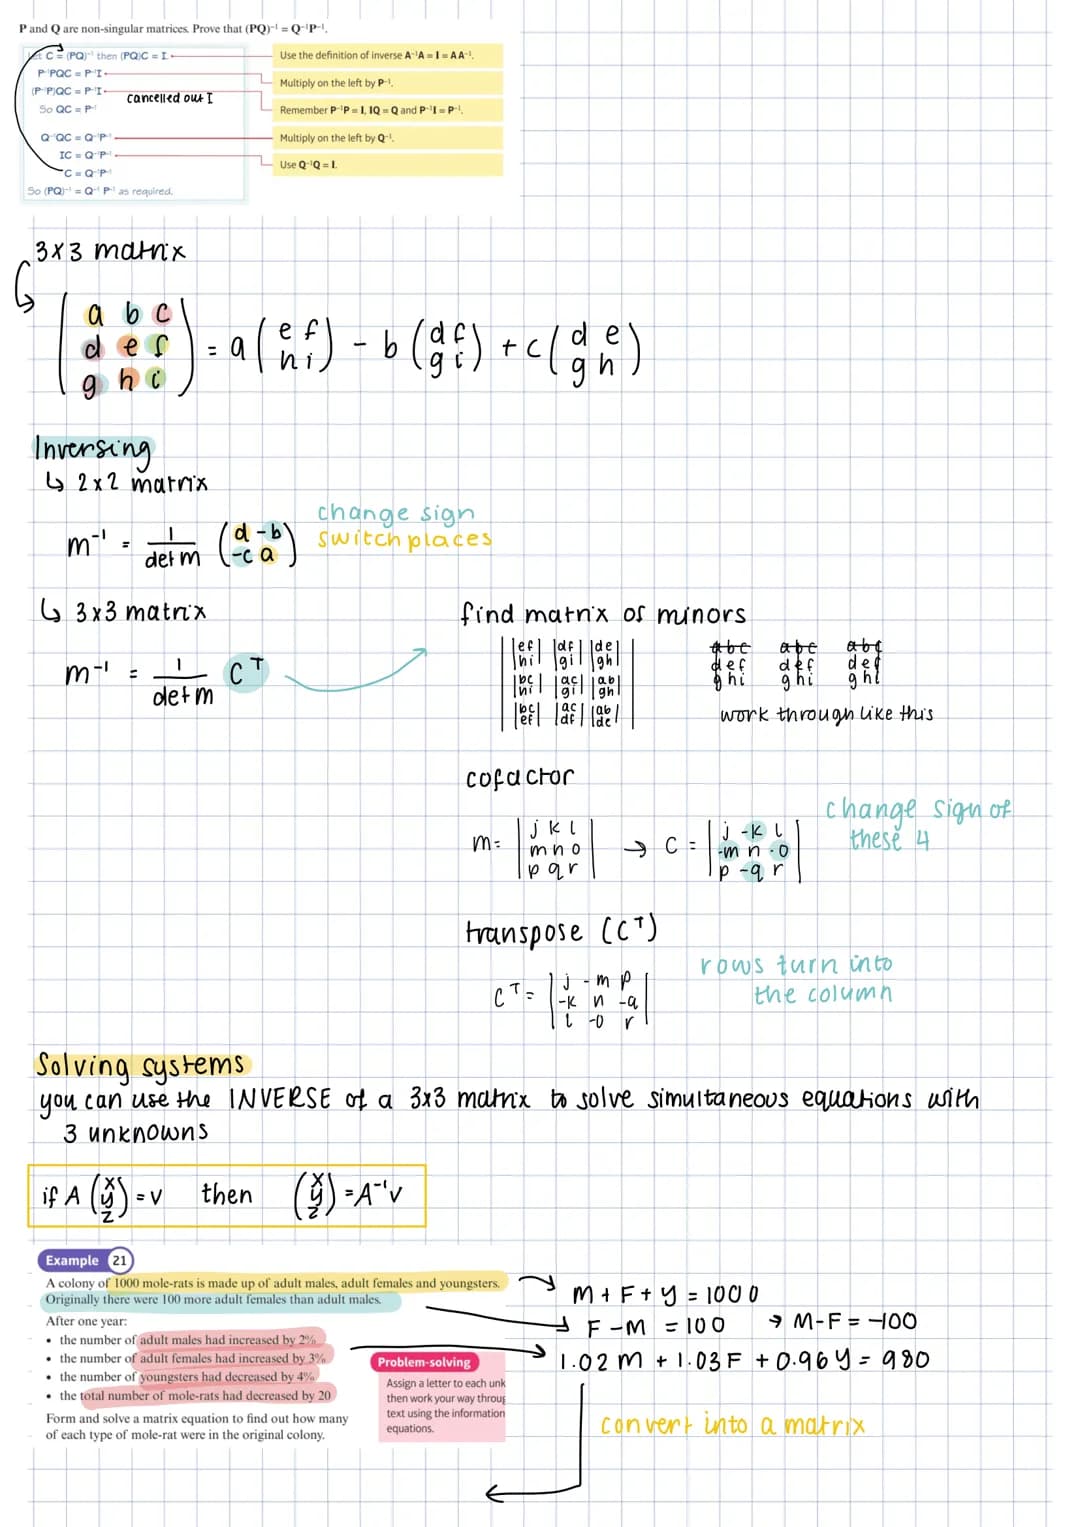 P and Q are non-singular matrices. Prove that (PQ)⁻¹ = Q⁻¹P⁻¹.
Let C = (PQ)⁻¹ then (PQ)C = I.
Use the definition of inverse A⁻¹A = I = AA⁻¹.
P⁻¹PQC = P⁻¹I
Multiply on the left by P⁻¹.
(P⁻¹P)QC = P⁻¹I
cancelled out I
So QC = P⁻¹
Remember P⁻¹P = I, IQ = Q and P⁻¹I = P⁻¹.
Q⁻¹QC = Q⁻¹P⁻¹
Multiply on the left by Q⁻¹.
IC = Q⁻¹P⁻¹
Use Q⁻¹Q = I.
C = Q⁻¹P⁻¹
So (PQ)⁻¹ = Q⁻¹ P⁻¹ as required.
3x3 matrix
a b c
d e f
g h i
= a (e f / h i) - b (d f / g i) + c (d e / g h)
Inversing
↳ 2x2 matrix
m⁻¹ = 1/det m (d -b / -c a)
change sign
switch places
↳ 3x3 matrix
m⁻¹ = 1/det m Cᵀ
find matrix of minors
|ef/hi| |df/gi| |de/gh|
|bc/hi| |ac/gi| |ab/gh|
|bc/ef| |ac/df| |ab/de|
abc abc abc
def def def
ghi ghi ghi
work through like this
cofactor
m = |j k l / m n o / p q r| → C = |j -k l / -m n -o / p -q r|
change sign of
these 4
transpose (Cᵀ)
Cᵀ = |j -m p / -k n -q / l -o r|
rows turn into
the column
Solving systems
you can use the INVERSE of a 3x3 matrix to solve simultaneous equations with
3 unknowns
if A (x/y/z) = v then (x/y/z) = A⁻¹v
Example 21
A colony of 1000 mole-rats is made up of adult males, adult females and youngsters.
Originally there were 100 more adult females than adult males.
After one year:
• the number of adult males had increased by 2%
• the number of adult females had increased by 3%
• the number of youngsters had decreased by 4%
• the total number of mole-rats had decreased by 20
Form and solve a matrix equation to find out how many
of each type of mole-rat were in the original colony.
Problem-solving
Assign a letter to each unk
then work your way throug
text using the information
equations.
M + F + y = 1000
F - M = 100 → M - F = -100
1.02 M + 1.03 F + 0.96 y = 980
convert into a matrix